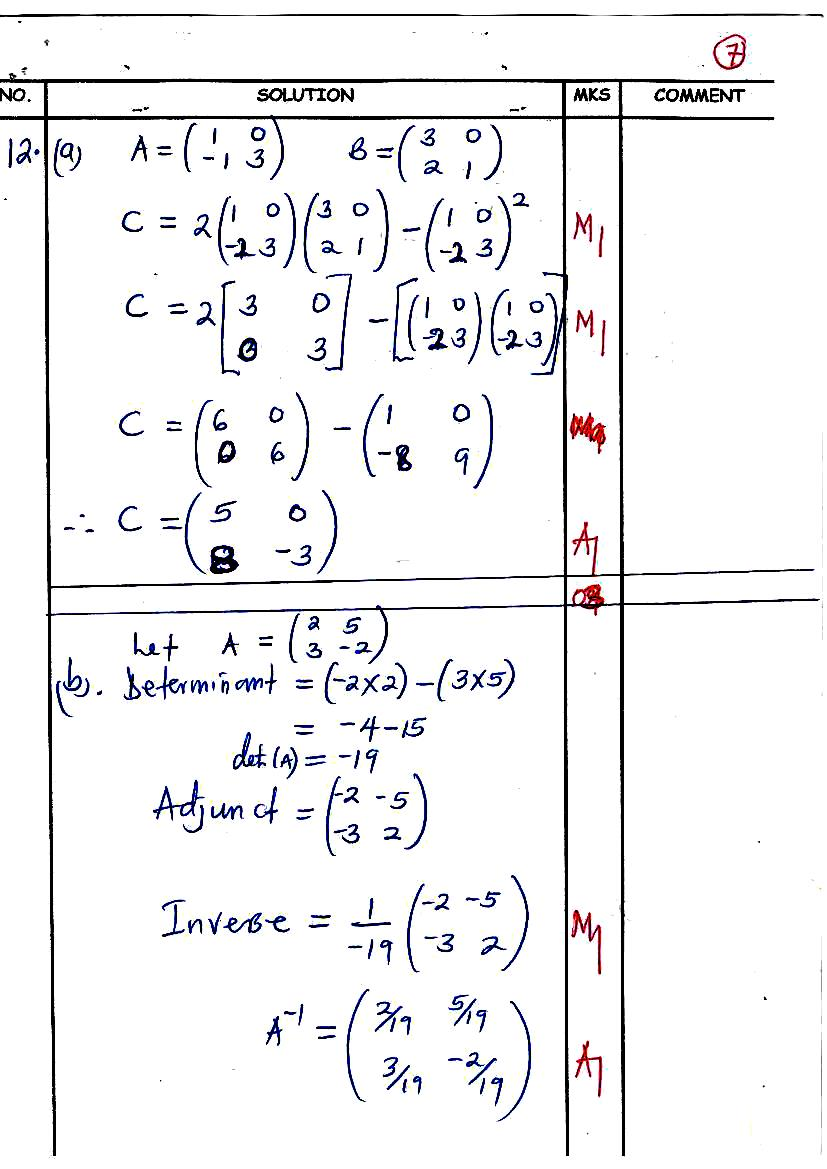 7
NO. SOLUTION MKS COMMENT
12. (a) A = (1 0 / -1 3) B = (3 0 / 2 1)
C = 2 (1 0 / -2 3) (3 0 / 2 1) - (1 0 / -2 3)² M1
C = 2 [3 0 / 0 3] - [(1 0 / -2 3) (1 0 / -2 3)] M1
C = (6 0 / 0 6) - (1 0 / -8 9)
∴ C = (5 0 / 8 -3) A1
Let A = (2 5 / 3 -2)
(b). Determinant = (-2×2) - (3×5)
= -4-15
det(A) = -19
Adjunct = (-2 -5 / -3 2)
Inverse = 1/-19 (-2 -5 / -3 2) M1
A⁻¹ = (2/19 5/19 / 3/19 -2/19) A1